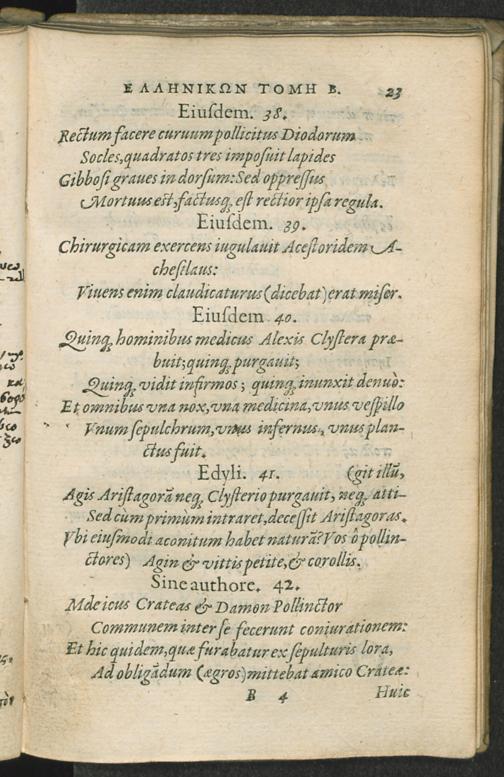 ΕΛΛΗΝΙΚΩΝ ΤΟΜΗ Β. 23
Eiuſdem. 38.
Rectum facere curuum pollicitus Diodorum
Socles, quadratos tres impoſuit lapides
Gibboſi graues in dorſum: Sed oppreſſus
Mortuus est, factusq́, eſt rectior ipſa regula.
Eiuſdem. 39.
Chirurgicam exercens iugulauit Aceſtoridem A-
cheſilaus:
Viuens enim claudicaturus (dicebat) erat miſer.
Eiuſdem 40.
Quinq, hominibus medicus Alexis Clyſtera præ-
buit; quinq, purgauit;
Quinq, vidit infirmos; quinq, inunxit denuò:
Et omnibus vna nox, vna medicina, vnus veſpillo
Vnum ſepulchrum, vnus infernus, vnus plan-
ctus fuit.
Edyli. 41. (git illũ,
Agis Ariſtagorã neq, Clyſterio purgauit, neq, atti-
Sed cùm primum intraret, deceſſit Ariſtagoras.
Vbi eiuſmodi aconitum habet naturã? Vos ô pollin-
ctores) Agin & vittis petite, & corollis.
Sine authore. 42.
Mdeicus Crateas & Damon Pollinctor
Communem inter ſe fecerunt coniurationem:
Et hic quidem, quæ furabatur ex ſepulturis lora,
Ad obligãdum (ægros) mittebat amico Crateæ:
B 4 Huic